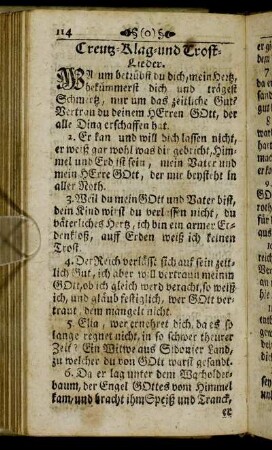 114 (0)
Creutz-Klag-und Trost-
Lieder.
WArum betrübst du dich, mein Hertz,
bekümmerst dich und trägest
Schmertz, nur um das zeitliche Gut?
Vertrau du deinem HErren GOtt, der
alle Ding erschaffen hat.
2. Er kan und will dich lassen nicht,
er weiß gar wohl was dir gebricht, Him-
mel und Erd ist sein, mein Vater und
mein HErre GOtt, der mir beysteht in
aller Noth.
3. Weil du mein GOtt und Vater bist,
dein Kind wirst du verlassen nicht, du
väterliches Hertz, ich bin ein armer Er-
denkloß, auff Erden weiß ich keinen
Trost.
4. Der Reich verläßt sich auf sein zeit-
lich Gut, ich aber will vertrauen meinem
GOtt, ob ich gleich werd veracht, so weiß
ich, und gläub festiglich, wer GOtt ver-
traut, dem mangelt nicht.
5. Elia, wer ernehret dich, da es so
lange regnet nicht, in so schwer theurer
Zeit? Ein Witwe aus Sidonier Land,
zu welcher du von GOtt warst gesandt.
6. Da er lag unter dem Wacholder-
baum, der Engel GOttes vom Himmel
kam, und bracht ihm Speiß und Tranck,
er